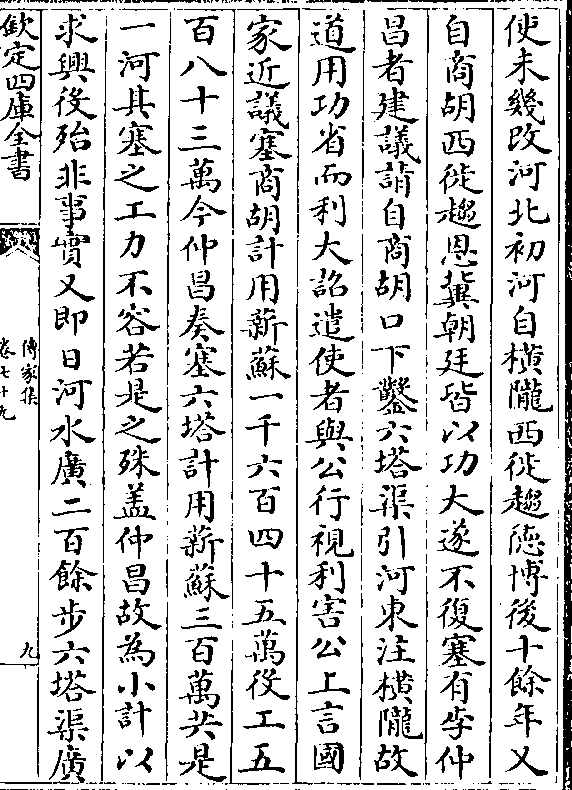 使未幾改河北初河自横隴西徙趨徳博後十餘年又
自商胡西徙趨恩冀朝廷皆以功大遂不復塞有李仲
昌者建議請自商胡口下鑿六塔渠引河東注横隴故
道用功省而利大詔遣使者與公行視利害公上言國
家近議塞商胡計用薪蘇一千六百四十五萬役工五
百八十三萬今仲昌奏塞六塔計用薪蘇三百萬共是
一河其塞之工力不容若是之殊盖仲昌故為小計以
求興役殆非事實又即日河水廣二百餘步六塔渠廣
欽定四庫全書
傳家集
卷七十九
九